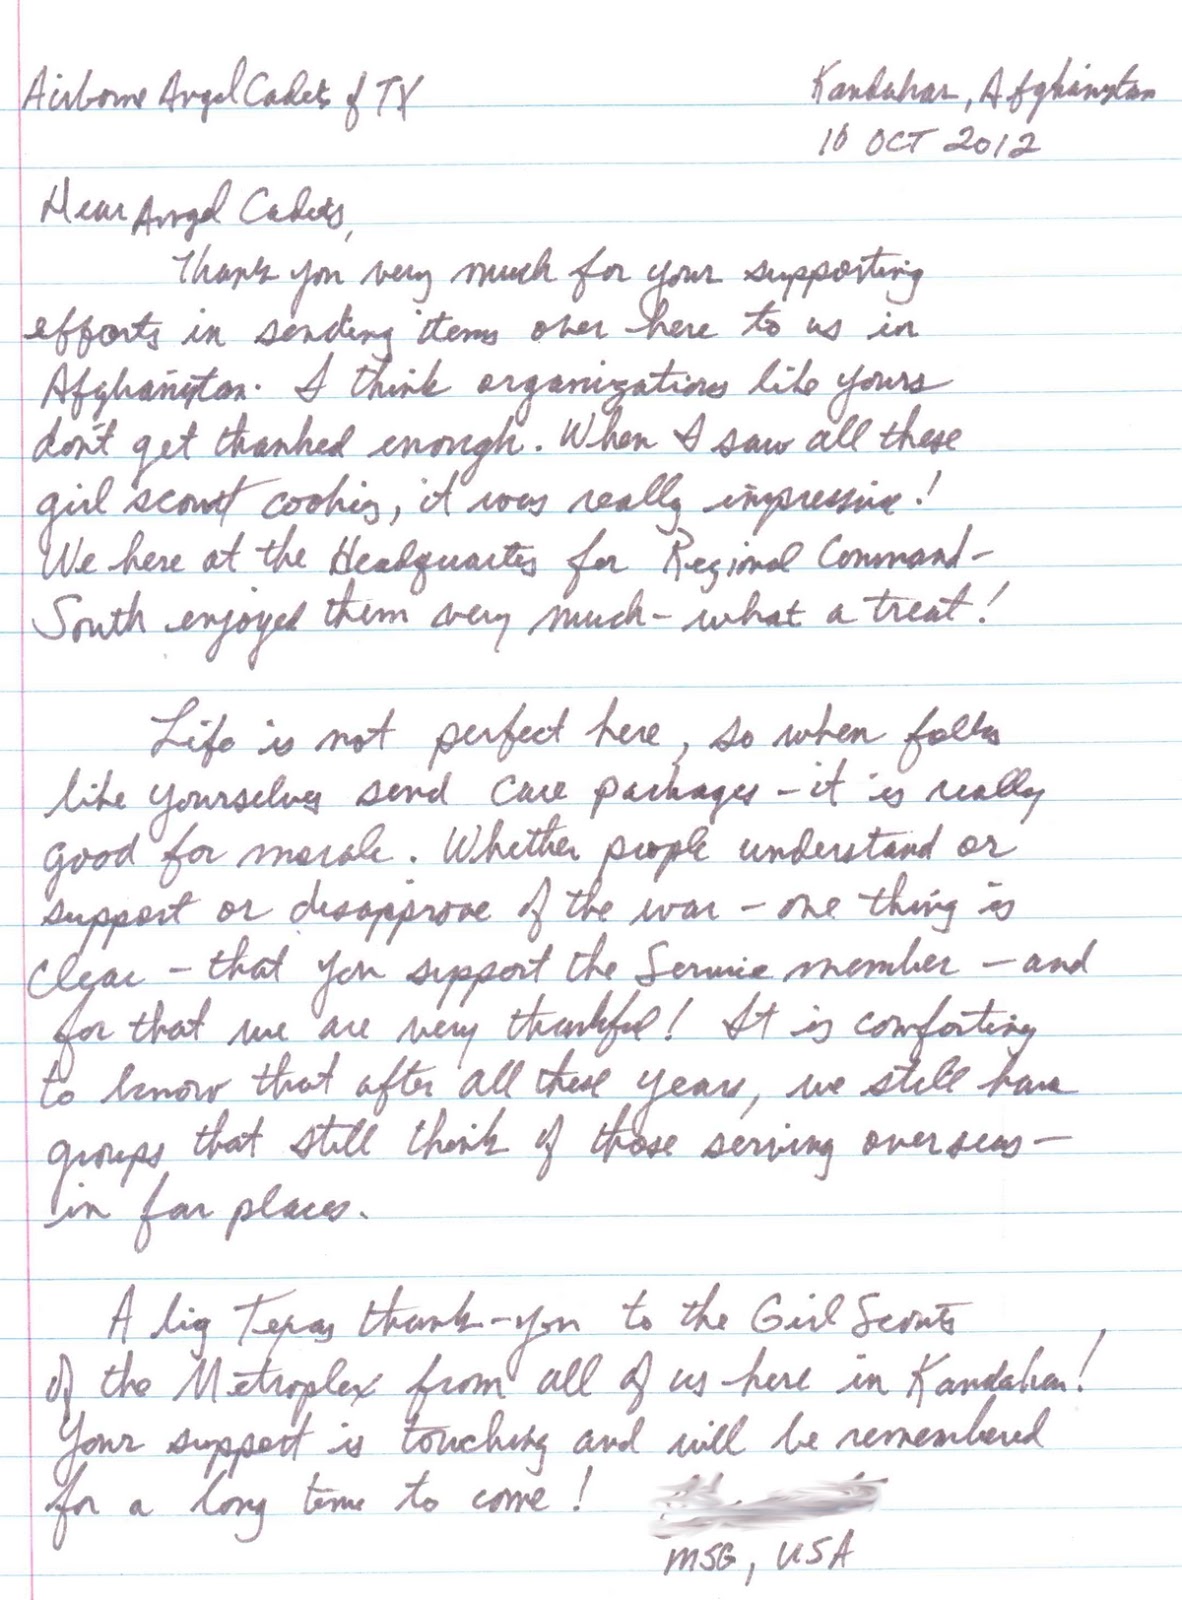 Airborne Angel Cadets of TX
Kandahar, Afghanistan
10 OCT 2012
Dear Angel Cadets,
Thank you very much for your supporting
efforts in sending items over here to us in
Afghanistan. I think organizations like yours
don't get thanked enough. When I saw all these
girl scout cookies, it was really impressive!
We here at the Headquarters for Regional Command-
South enjoyed them very much - what a treat!
Life is not perfect here, so when folks
like yourselves send care packages - it is really
good for morale. Whether people understand or
support or disapprove of the war - one thing is
clear - that you support the Service member - and
for that we are very thankful! It is comforting
to know that after all these years, we still have
groups that still think of those serving overseas -
in far places.
A big Texas thank-you to the Girl Scouts
of the Metroplex from all of us here in Kandahar!
Your support is touching and will be remembered
for a long time to come!
MSG, USA